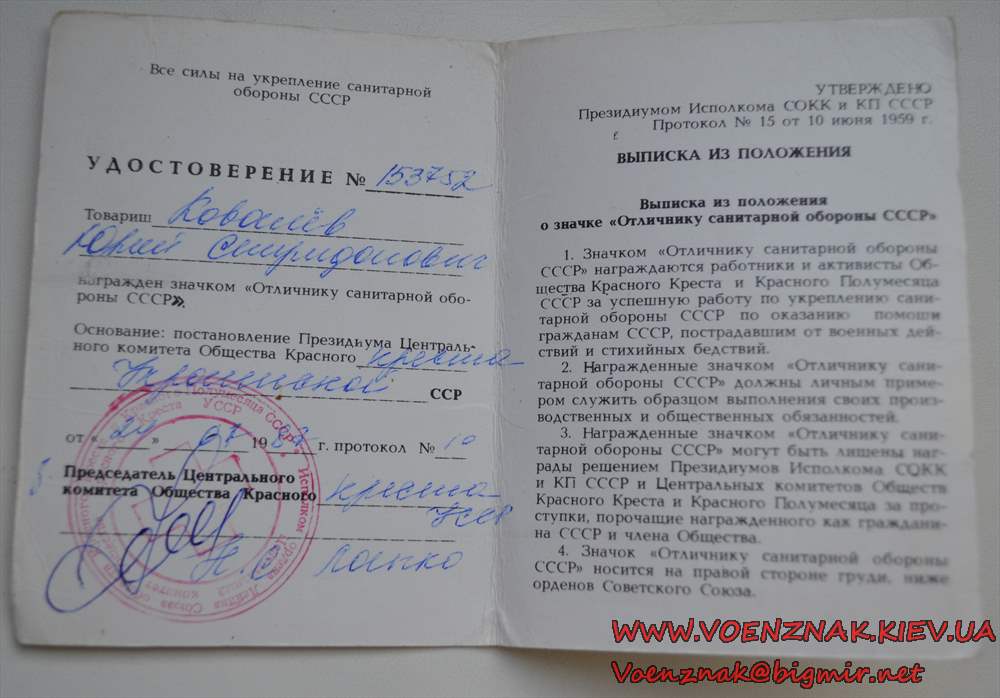 Все силы на укрепление санитарной
обороны СССР
УДОСТОВЕРЕНИЕ № 153752
Товарищ Ковалёв
Юрий
награжден значком «Отличнику санитарной обо-
роны СССР».
Основание: постановление Президиума Централь-
ного комитета Общества Красного креста
Украинской ССР
от « 24 » 07 198 г. протокол № 10
Председатель Центрального
комитета Общества Красного креста
УССР
УТВЕРЖДЕНО
Президиумом Исполкома СОКК и КП СССР
Протокол № 15 от 10 июня 1959 г.
ВЫПИСКА ИЗ ПОЛОЖЕНИЯ
Выписка из положения
о значке «Отличнику санитарной обороны СССР»
1. Значком «Отличнику санитарной обороны
СССР» награждаются работники и активисты Об-
щества Красного Креста и Красного Полумесяца
СССР за успешную работу по укреплению сани-
тарной обороны СССР по оказанию помощи
гражданам СССР, пострадавшим от военных дей-
ствий и стихийных бедствий.
2. Награжденные значком «Отличнику сани-
тарной обороны СССР» должны личным приме-
ром служить образцом выполнения своих произ-
водственных и общественных обязанностей.
3. Награжденные значком «Отличнику сани-
тарной обороны СССР» могут быть лишены наг-
рады решением Президиумов Исполкома СОКК
и КП СССР и Центральных комитетов Обществ
Красного Креста и Красного Полумесяца за про-
ступки, порочащие награжденного как граждани-
на СССР и члена Общества.
4. Значок «Отличнику санитарной обороны
СССР» носится на правой стороне груди, ниже
орденов Советского Союза.
WWW.VOENZNAK.KIEV.UA
Voenznak@bigmir.net